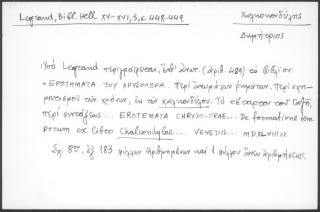 Legrand, Bibl. Hell. XV-XVI, 3, σ. 448-449.
Χαλκοκονδύλης
Δημήτριος
Ὑπὸ Legrand περιγράφεται, (ἀριθ. 489) τὸ βιβλίον:
"ΕΡΩΤΗΜΑΤΑ ΤΟΥ ΧΡΥΣΟΛΩΡΑ. Περὶ ῥημάτων. Περὶ σχη-
ματισμοῦ τῶν χρόνων, ἐκ τῶν Χαλκονδύλου. Τὸ τέταρτον τοῦ Γαζῆ,
περὶ συντάξεως... EROTEMATA CHRYSOLORAE. De formatione tem-
porum ex libro Chalcondylae... VENETIIS... MDXLVIIII»
Σχ. 8ον, ἐξ 183 φύλλων ἠριθμημένων καὶ 1 φύλλου ἄνευ ἀριθμήσεως.